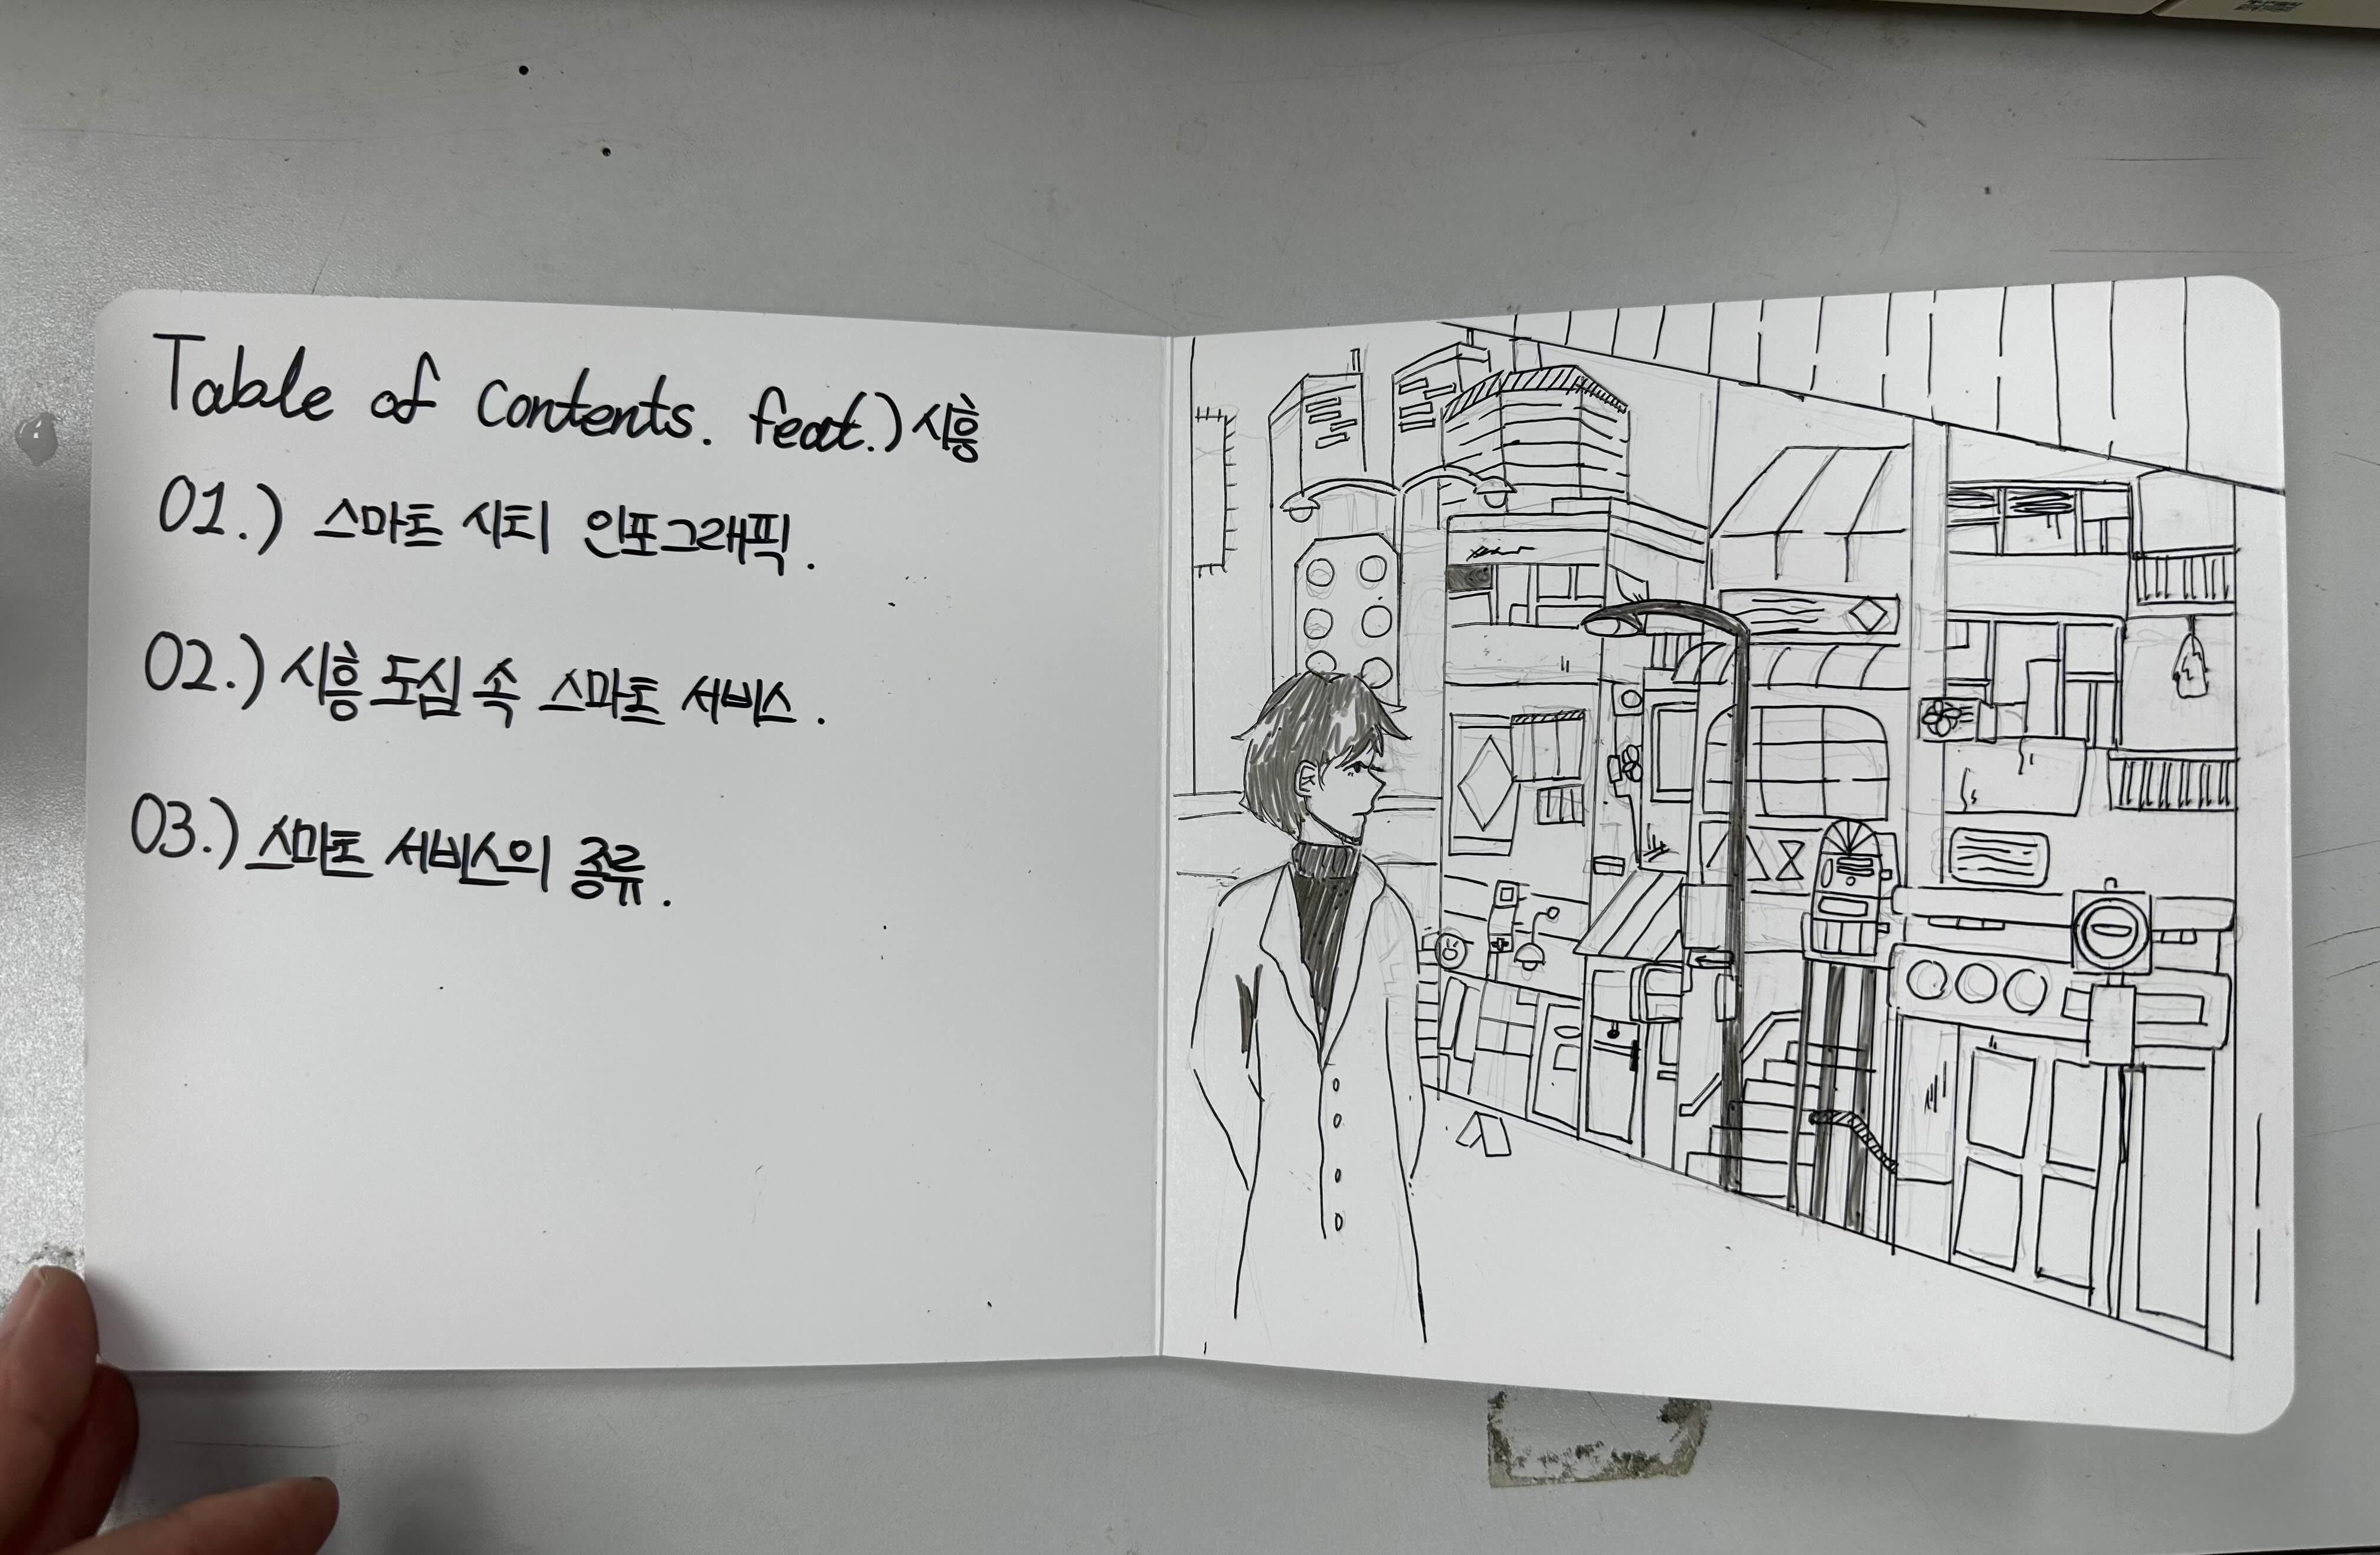 Table of contents. feat.) 시흥
01.) 스마트 시티 인포그래픽.
02.) 시흥 도심 속 스마트 서비스.
03.) 스마트 서비스의 종류.